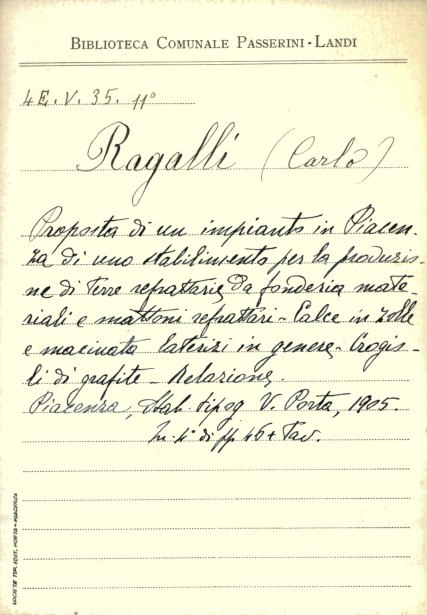 BIBLIOTECA COMUNALE PASSERINI-LANDI
4E.V.35.11°
Ragalli (Carlo)
Proposta di un impianto in Piacen-
za di uno stabilimento per la produzio-
ne di Terre refrattarie, da fonderia mate-
riali e mattoni refrattari - Calce in zolle
e macinata laterizi in genere - Crogio-
li di grafite - Relazione.
Piacenza, Stab. tipog V. Porta, 1905.
In-4° di pp 46 + Tav.
SOCIETÀ TIP. EDIT. PORTA - PIACENZA